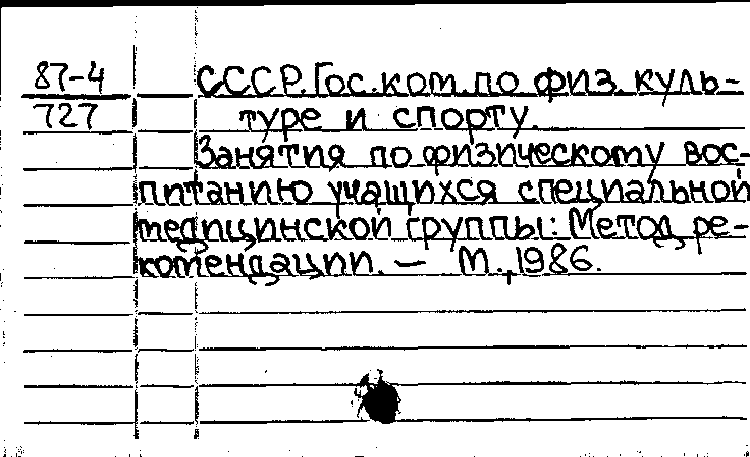 87-4 СССР. Гос. ком. по физ. куль-
727 туре и спорту.
Занятия по физическому вос-
питанию учащихся специальной
медицинской группы: Метод. ре-
комендации. — М., 1986.